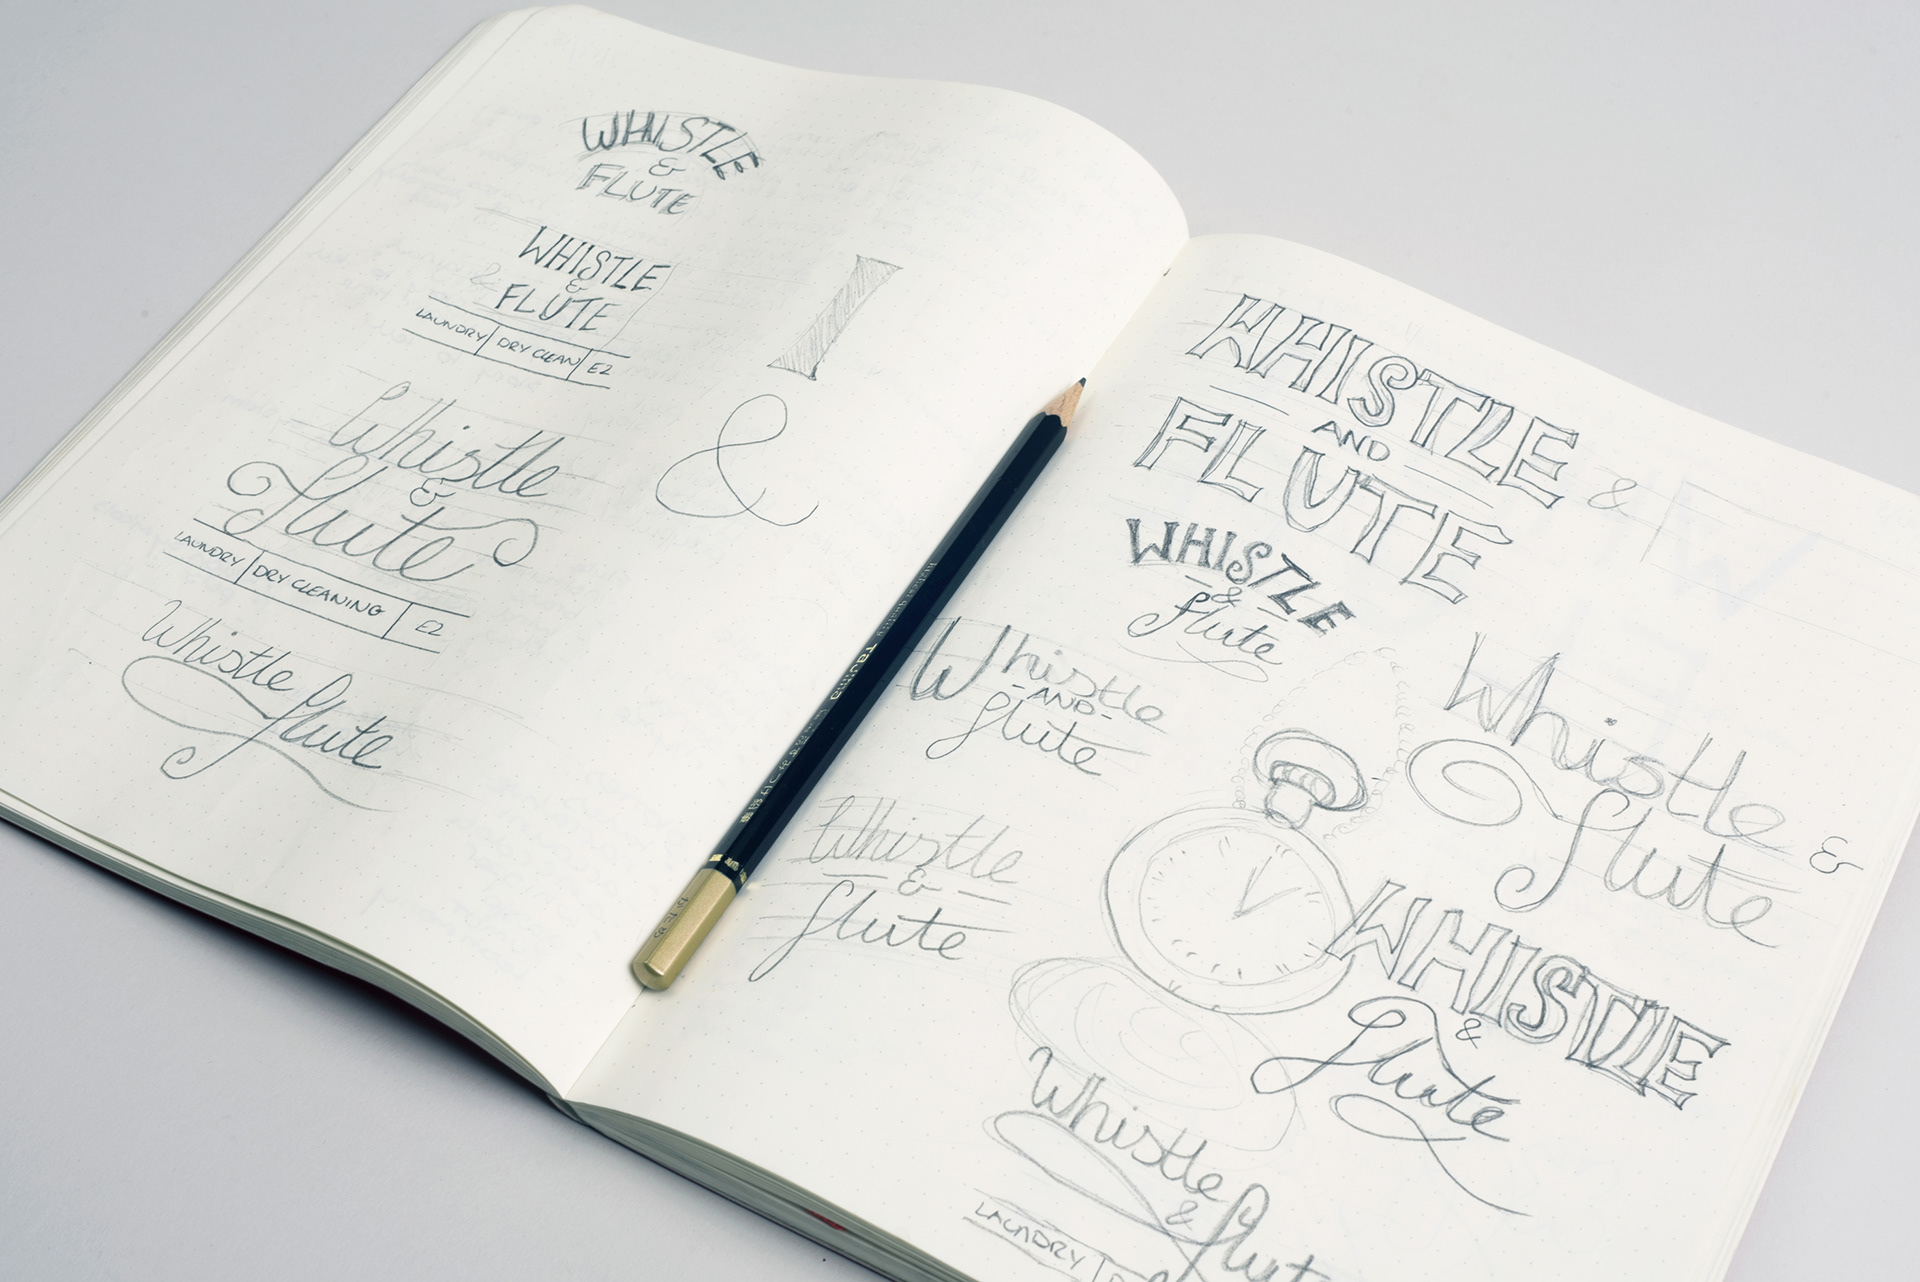 WHISTLE
&
FLUTE
WHISTLE
&
& FLUTE
LAUNDRY DRY CLEAN E2
Whistle
&
flute
LAUNDRY DRY CLEANING E2
Whistle flute
&
WHISTLE
AND
FLUTE
&
W
WHISTLE
&
flute
Whistle
-AND-
flute
Whistle
&
flute
Whistle
flute &
WHISTLE
&
flute
Whistle
& flute
LAUNDRY
Tacuma